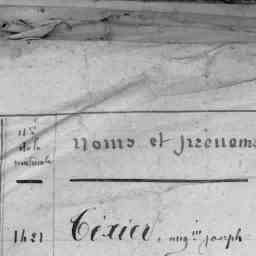 Nº
de la
matricule
Noms et prénoms
1421
Téxier, aug.in joseph